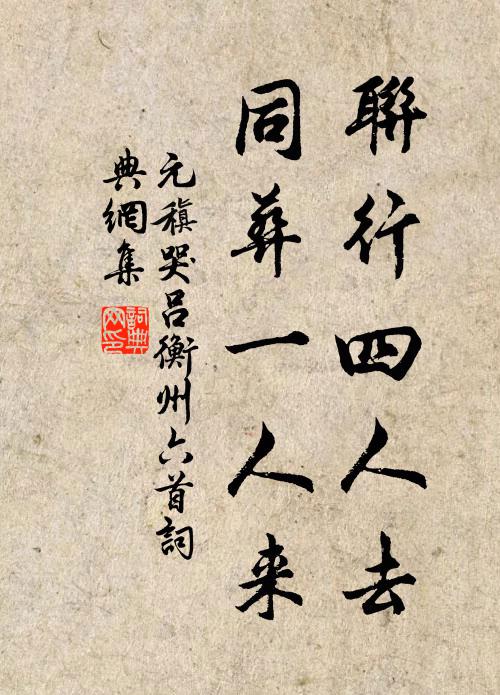 聯行四人去
同葬一人来
元稹哭呂衡州六首詞
典網集
詞典
网印